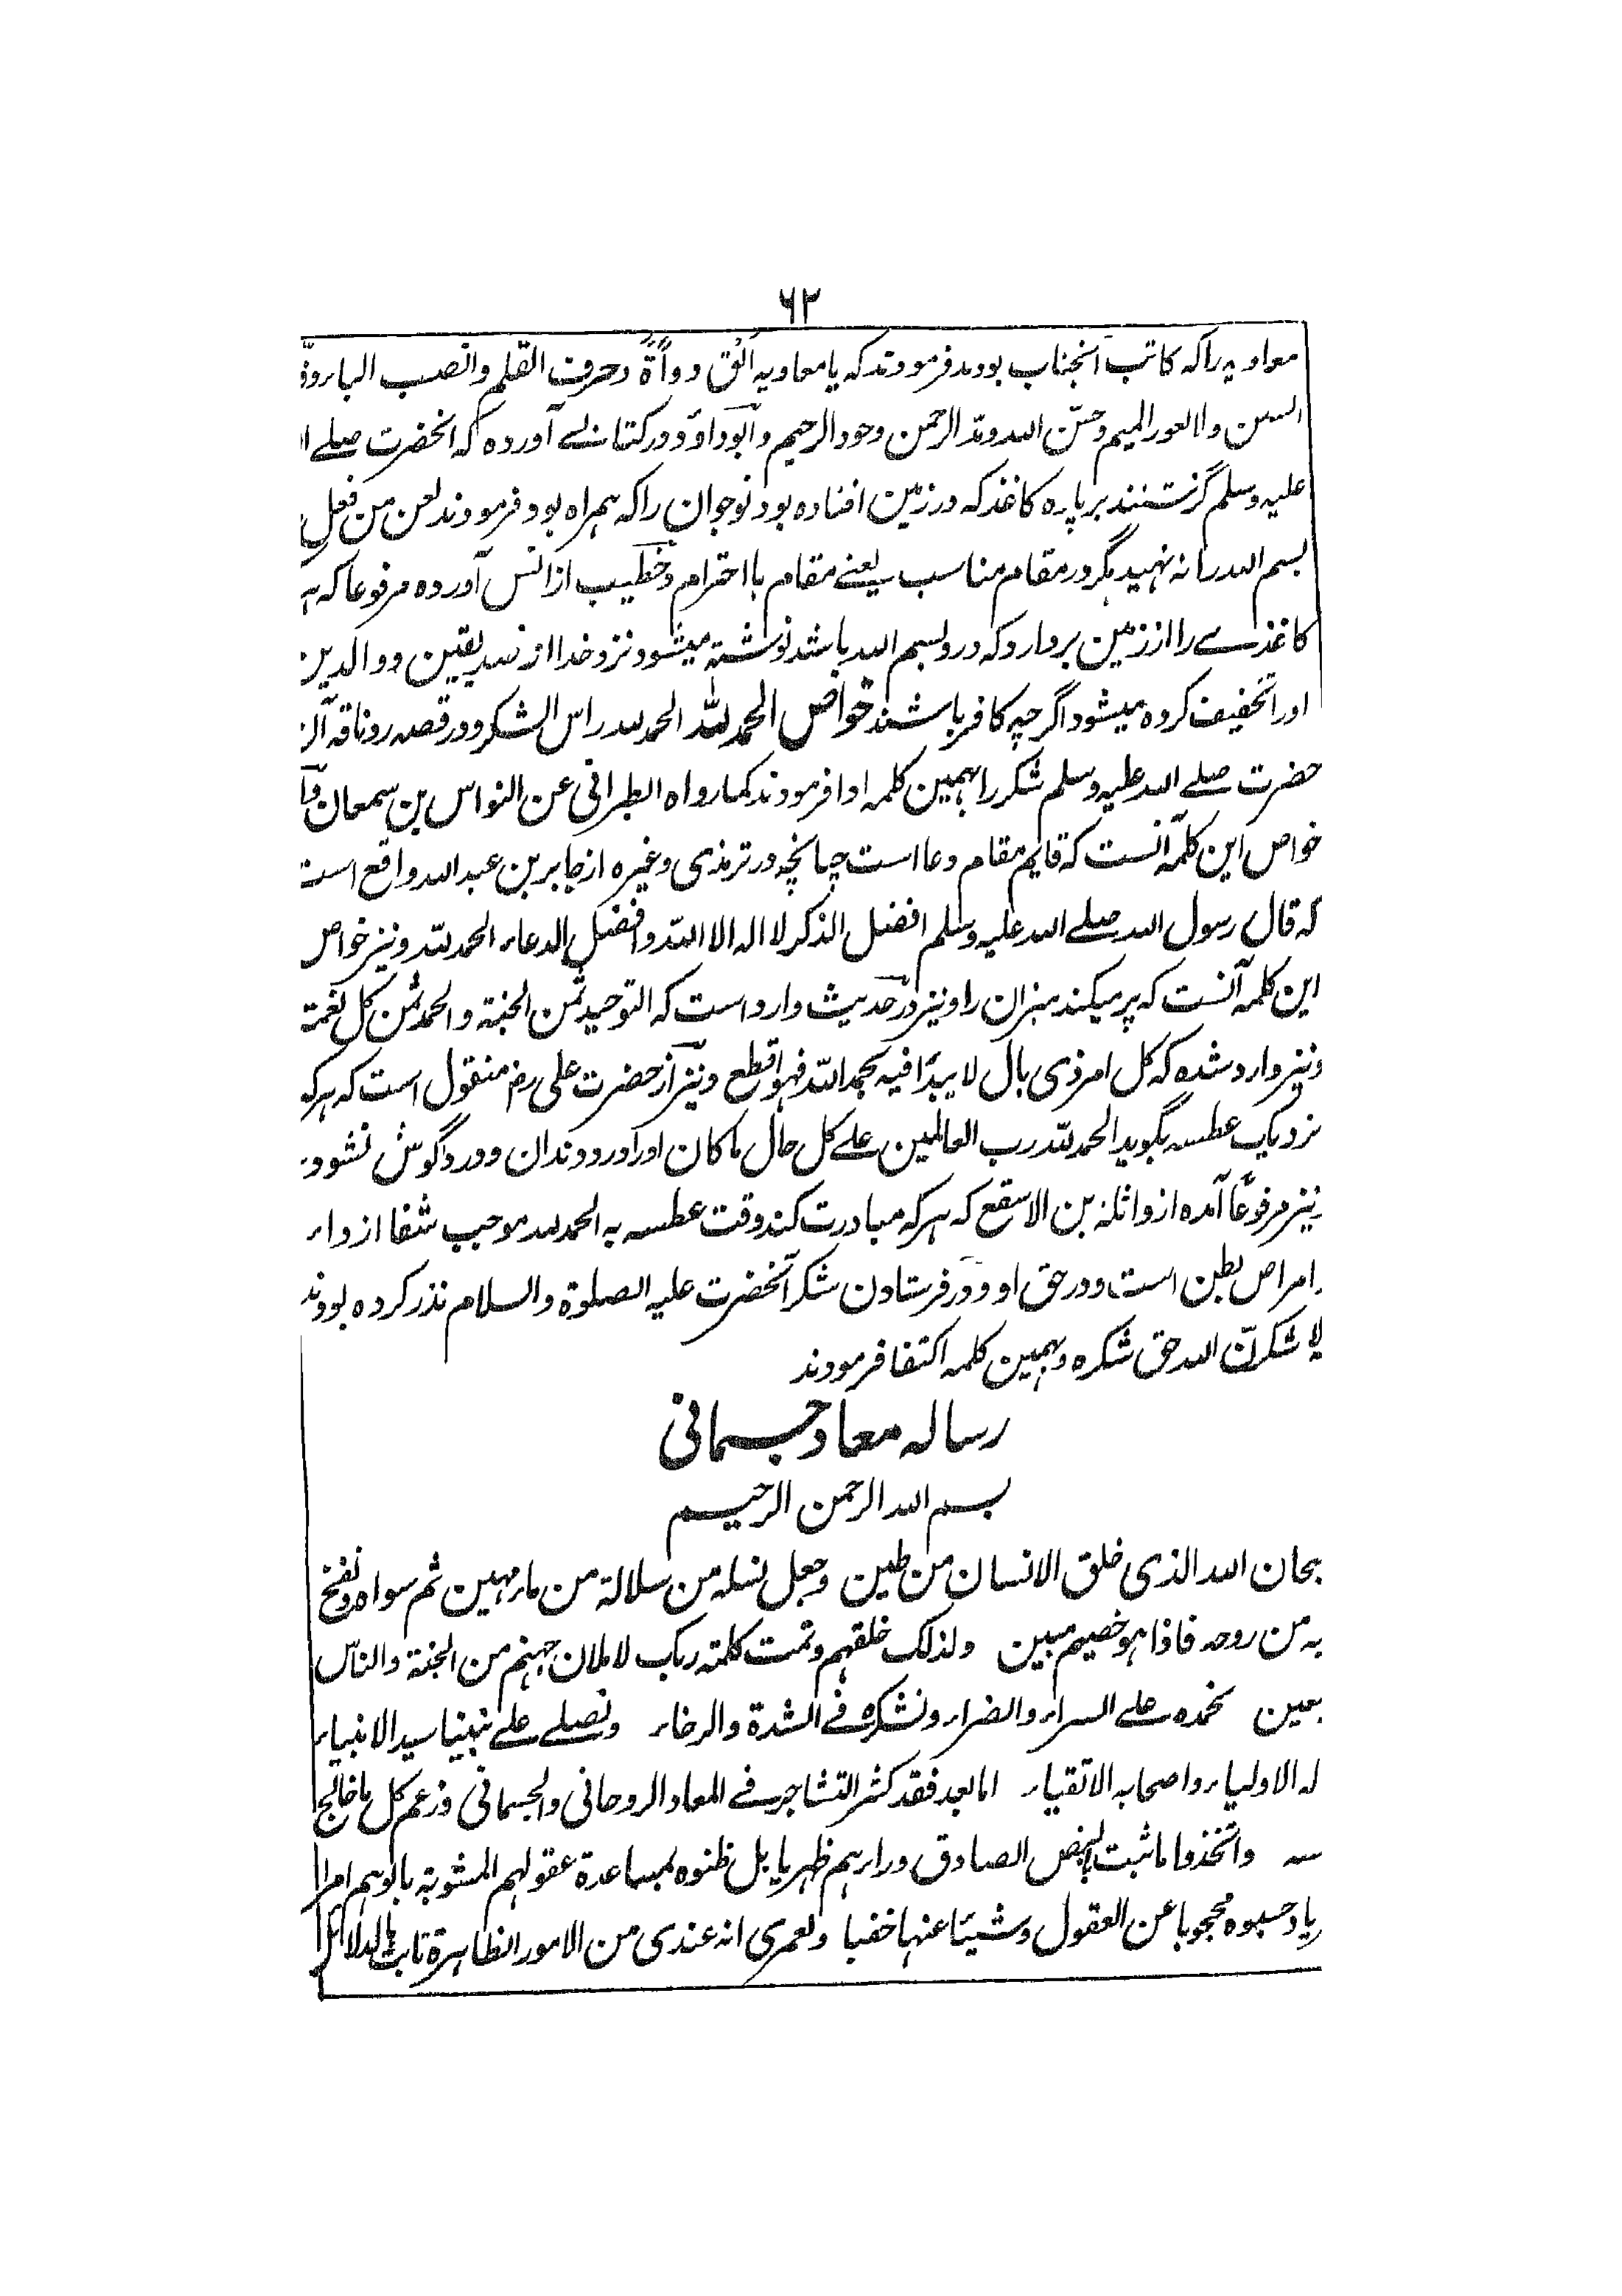 ۶۲
معاویه راکه کاتب آنجناب بودند فرمودند که یا معاویه اَلْق دواةً وحرف القلم وانصب الباء وفرّ
السین ولا تعور المیم وحسّن الله ومد الرحمن وجود الرحیم وابوداؤد در کتابے آورده که انحضرت صلے ا
علیه وسلم گزشتند بر پاره کاغذ که در زمین افتاده بود نوجوان راکه همراه بود فرمودند لعن من فعل
بسم الله را نه نهید مگر در مقام مناسب یعنے مقام با احترام وخطیب از انس آورده مرفوعا که ه
کاغذے را از زمین بردارد که درو بسم الله باشد نوشته میشود نزد خدا از صدیقین ووالدین
اورا تخفیف کرده میشود اگرچه کافر باشند خواص الحمد لله الحمد لله راس الشکر ودر قصه رد ناقه آن
حضرت صلے الله علیه وسلم شکر را بهمین کلمه ادا فرمودند کما رواه الطبرانی عن النواس بن سمعان وا
خواص این کلمه آنست که قایم مقام دعا است چنانچه در ترمذی وغیره از جابر بن عبد الله واقع است
که قال رسول الله صلے الله علیه وسلم افضل الذکر لا اله الا الله وافضل الدعاء الحمد لله ونیز خواص
این کلمه آنست که پر میکند میزان را ونیز در حدیث وارد است که التوحید ثمن الجنة والحمد ثمن کل نعمة
ونیز وارد شده که کل امر ذی بال لا یبدأ فیه بحمد الله فهو اقطع ونیز از حضرت علی رض منقول است که هرکه
نزدیک عطسه بگوید الحمد لله رب العالمین علے کل حال ما کان اورا درد دندان ودرد گوش نشود و
نیز مرفوعًا آمده از واثله بن الاسقع که هرکه مبادرت کند وقت عطسه به الحمد لله موجب شفا از داء
امراض بطن است ودر حق او ودر فرستادن شکر آنحضرت علیه الصلوة والسلام نذر کرده بودند
لا شکرنّ الله حق شکره وبهمین کلمه اکتفا فرمودند
رساله معاد جسمانی
بسم الله الرحمن الرحیم
بحان الله الذی خلق الانسان من طین وجعل نسله من سلالة من ماء مهین ثم سواه ونفخ
یه من روحه فاذا هو خصیم مبین ولذلک خلقهم وتمت کلمة ربک لاملان جهنم من الجنة والناس
معین نحمده علے السراء والضراء ونشکره فے الشدة والرخاء ونصلے علے نبینا سید الانبیاء
له الاولیاء واصحابه الاتقیاء اما بعد فقد کثر التشاجر فے المعاد الروحانی والجسمانی وزعم کل ما خالج
سه واتخذوا ما ثبت بالنص الصادق وراءهم ظهریا بل ظنوه بمساعدة عقولهم المشوبة بالوهم امرا
ریا وحسبوه محجوبا عن العقول وشیئا عنها خفیا ولعمری انه عندی من الامور الظاهرة ثابت بالدلائل